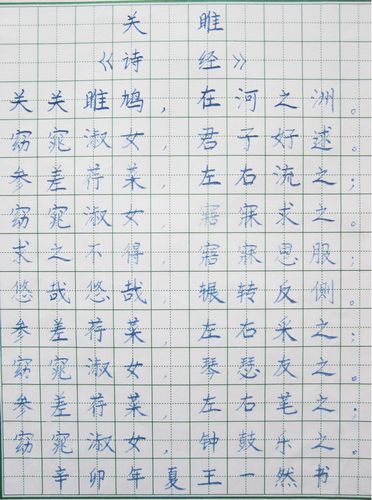 关雎
《诗经》
关关雎鸠，在河之洲。
窈窕淑女，君子好逑。
参差荇菜，左右流之；
窈窕淑女，寤寐求之。
求之不得，寤寐思服；
悠哉悠哉，辗转反侧。
参差荇菜，左右采之；
窈窕淑女，琴瑟友之。
参差荇菜，左右笔之；
窈窕淑女，钟鼓乐之。
辛卯年夏王一然书